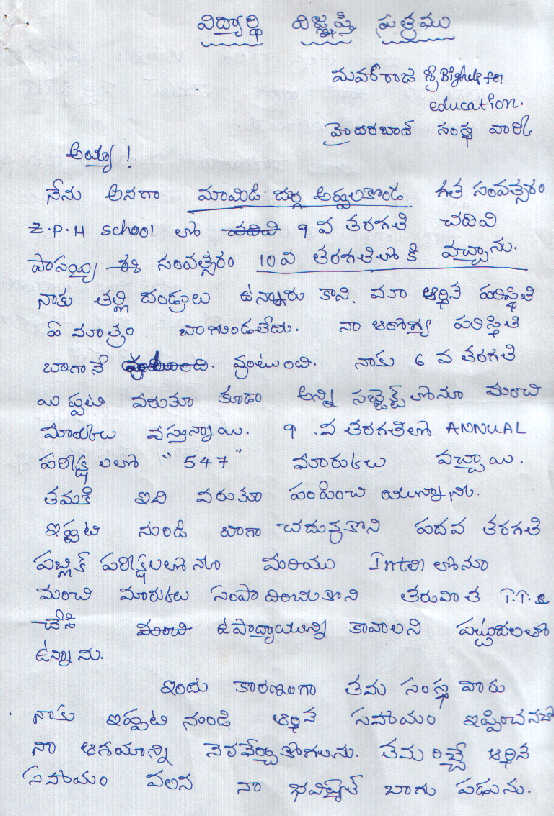 విద్యార్థి విజ్ఞప్తి పత్రము
మహారాజ శ్రీ Bighelp for
education.
హైదరబాద్ సంస్థ వారికి
అయ్యా !
నేను అనగా మామిడి దుర్గ అప్పలకొండ గత సంవత్సరం
Z.P.H school లో చదివి 9 వ తరగతి చదివి
పాసయ్యి ఈ సంవత్సరం 10 వ తరగతిలో కి వచ్చాను.
నాకు తల్లి దండ్రులు ఉన్నారు కాని, మా ఆర్థిక పరిస్థితి
ఏ మాత్రం బాగుండలేదు. నా ఆరోగ్య పరిస్థితి
బాగానే వుంటుంది. వుంటుంది. నాకు 6 వ తరగతి
ఇప్పటి వరుకూ కూడా అన్ని సబ్జెక్ట్ లోనూ మంచి
మార్కులు వస్తున్నాయి. 9 .వ తరగతిలో ANNUAL
పరీక్ష లలో "547" మారుకులు వచ్చాయి.
తమకి ఇది వరుకూ పంపించి యున్నాను.
ఇప్పటి నుండి బాగా చదువుకొని పదవ తరగతి
పబ్లిక్ పరీక్షలలోనూ మరియు Inter లోనూ
మంచి మారుకులు సంపాదించుకొని తరువాత T.T.C
చేసి మంచి ఉపాధ్యాయున్ని కావాలని పట్టుదలతో
ఉన్నాను.
ఇందు కారణంగా తమ సంస్థ వారు
నాకు ఇప్పటి నుండి ఆర్థిక సహాయం ఇప్పించినచో
నా ఆశయాన్ని నెరవేర్చుకోగలను. తమ రిచ్చే ఆర్థిక
సహాయం వలన నా భవిష్యత్ బాగు పడును.